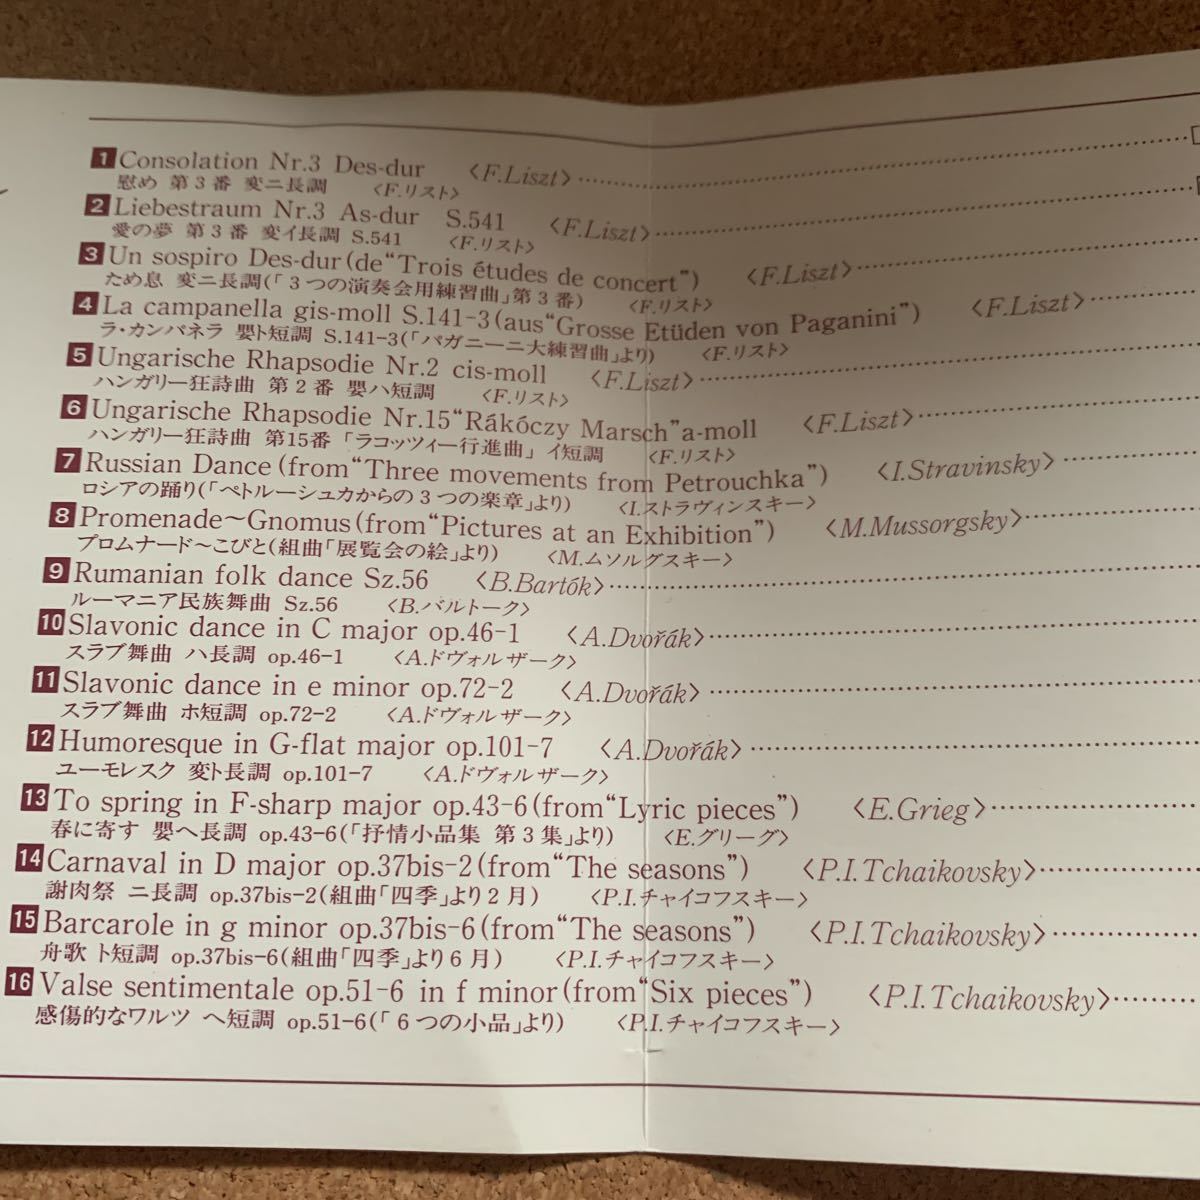 1 Consolation Nr.3 Des-dur 〈F.Liszt〉
慰め 第3番 変ニ長調 〈F.リスト〉
2 Liebestraum Nr.3 As-dur S.541 〈F.Liszt〉
愛の夢 第3番 変イ長調 S.541 〈F.リスト〉
3 Un sospiro Des-dur(de“Trois études de concert”) 〈F.Liszt〉
ため息 変ニ長調(「3つの演奏会用練習曲」第3番) 〈F.リスト〉
4 La campanella gis-moll S.141-3(aus“Grosse Etüden von Paganini”) 〈F.Liszt〉
ラ・カンパネラ 嬰ト短調 S.141-3(「パガニーニ大練習曲」より) 〈F.リスト〉
5 Ungarische Rhapsodie Nr.2 cis-moll 〈F.Liszt〉
ハンガリー狂詩曲 第2番 嬰ハ短調 〈F.リスト〉
6 Ungarische Rhapsodie Nr.15“Rákóczy Marsch”a-moll 〈F.Liszt〉
ハンガリー狂詩曲 第15番「ラコッツィー行進曲」イ短調 〈F.リスト〉
7 Russian Dance(from“Three movements from Petrouchka”) 〈I.Stravinsky〉
ロシアの踊り(「ペトルーシュカからの3つの楽章」より) 〈I.ストラヴィンスキー〉
8 Promenade~Gnomus(from“Pictures at an Exhibition”) 〈M.Mussorgsky〉
プロムナード~こびと(組曲「展覧会の絵」より) 〈M.ムソルグスキー〉
9 Rumanian folk dance Sz.56 〈B.Bartók〉
ルーマニア民族舞曲 Sz.56 〈B.バルトーク〉
10 Slavonic dance in C major op.46-1 〈A.Dvořák〉
スラブ舞曲 ハ長調 op.46-1 〈A.ドヴォルザーク〉
11 Slavonic dance in e minor op.72-2 〈A.Dvořák〉
スラブ舞曲 ホ短調 op.72-2 〈A.ドヴォルザーク〉
12 Humoresque in G-flat major op.101-7 〈A.Dvořák〉
ユーモレスク 変ト長調 op.101-7 〈A.ドヴォルザーク〉
13 To spring in F-sharp major op.43-6(from“Lyric pieces”) 〈E.Grieg〉
春に寄す 嬰ヘ長調 op.43-6(「抒情小品集 第3集」より) 〈E.グリーグ〉
14 Carnaval in D major op.37bis-2(from“The seasons”) 〈P.I.Tchaikovsky〉
謝肉祭 ニ長調 op.37bis-2(組曲「四季」より2月) 〈P.I.チャイコフスキー〉
15 Barcarole in g minor op.37bis-6(from“The seasons”) 〈P.I.Tchaikovsky〉
舟歌 ト短調 op.37bis-6(組曲「四季」より6月) 〈P.I.チャイコフスキー〉
16 Valse sentimentale op.51-6 in f minor(from“Six pieces”) 〈P.I.Tchaikovsky〉
感傷的なワルツ ヘ短調 op.51-6(「6つの小品」より) 〈P.I.チャイコフスキー〉